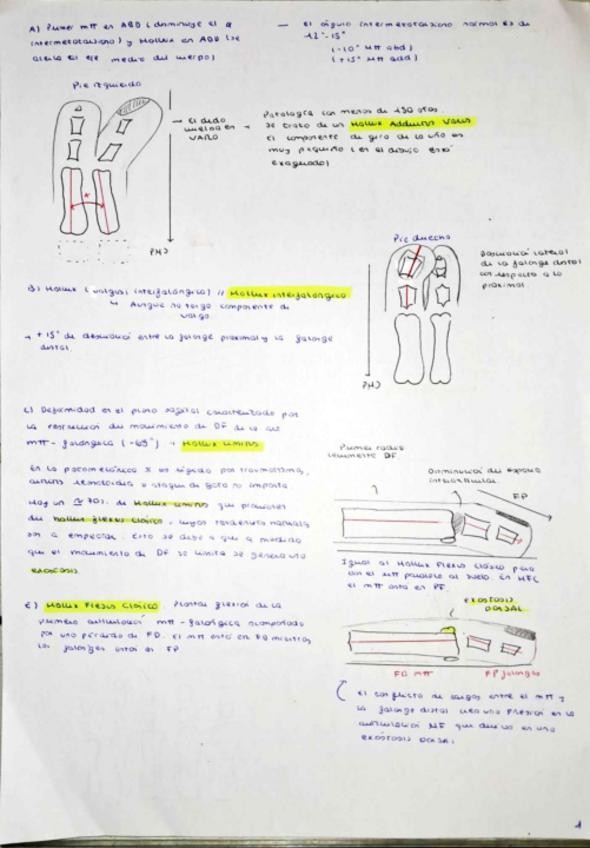 A) Primer mtt en ABD (disminuye el α
intermetatarsiano) y Hallux en ADD (se
acerca al eje medio del cuerpo)
— el ángulo intermetatarsiano normal es de
12° - 15°
(-10° Mtt abd)
(+15° Mtt add)
Pie izquierdo
→ El dedo
vuelve en
VARO
Patología con menos de
Se trata de un Hallux Adductus Varus
El componente de giro de la uña es
muy pequeño (en el dibujo está
exagerado)
Pie derecho
Desviación lateral
de la falange distal
con respecto a la
proximal.
B) Hallux (valgus interfalángico) // Hallux interfalángico
↳ Aunque no tenga componente de
valgo.
→ +15° de desviación entre la falange proximal y la falange
distal.
C) Deformidad en el plano sagital caracterizado por
la restricción del movimiento de DF de la art
mtt - falángica (-65°) → Hallux Limitus
artritis reumatoide o ataque de gota no importa
Hay un ≃ 70% de Hallux Limitus que provienen
del hallux flexus clásico, cuyas
van a empeorar. Esto se debe a que a medida
que el movimiento de DF se limita se genera una
exostosis
Primer radio
levemente DF
Disminución del espacio
interarticular.
FP
Igual al Hallux Flexus Clásico pero
con el mtt paralelo al suelo. En HFC
el mtt está en FD.
E) Hallux Flexus Clásico. Plantar flexión de la
primera articulación mtt - falángica acompañado
por una pérdida de FD. El mtt está en FD mientras
las falanges están en FP
exostosis
DORSAL
FD mtt
FP falanges
El conflicto de cargas entre el mtt y
la falange distal crea una presión en la
articulación MF que deriva en una
exóstosis DORSAL.
1